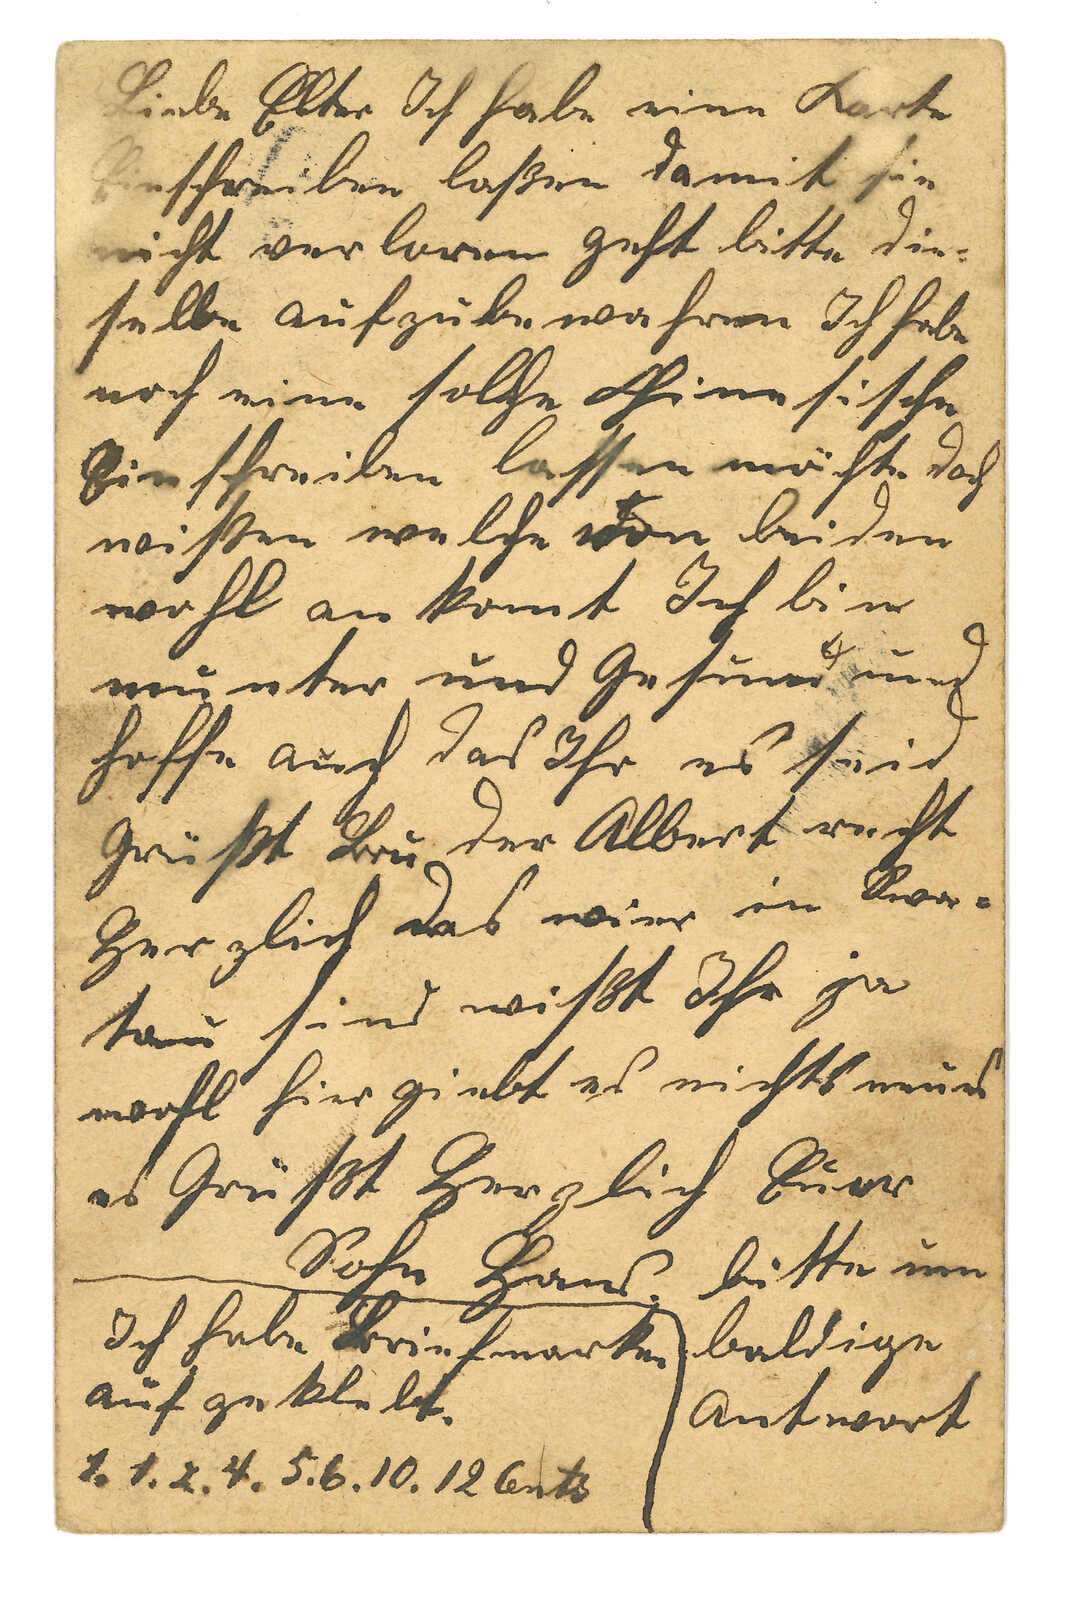 Liebe Elter Ich habe eine Karte
Einschreiben laßen damit sie
nicht verloren geht bitte die-
selbe aufzubewahren Ich habe
noch eine solche Chinesische
Einschreiben lassen möchte doch
wißen welche von beiden
wohl an komt Ich bin
munter und Gesund und
hoffe auch das Ihr es seid
Grüßt Bruder Albert recht
Herzlich das wier in Swa-
tau sind wißt Ihr ja
wohl hier giebt es nichts neues
es Grüßt Herzlich Euer
Sohn Hans.
bitte um
baldige
Antwort
Ich habe Briefmarken
auf geklebt.
1. 1. 2. 4. 5. 6. 10. 12 Cents